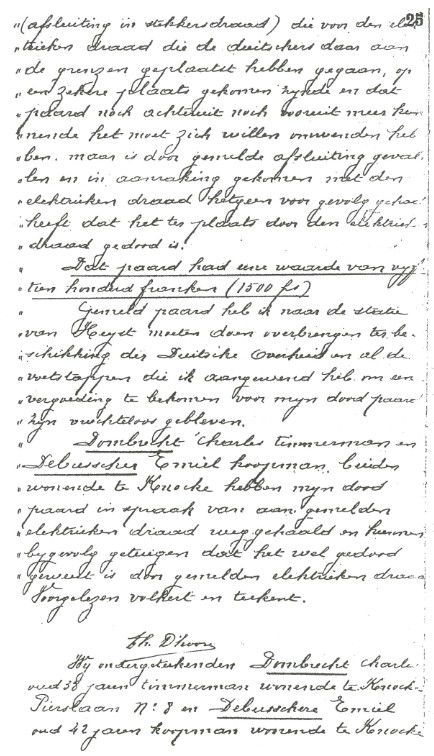 25
"(afsluiting in stekkersdraad) die voor den elec
"trieken draad die de duitschers daar aan
"de grenzen geplaatst hebben gegaan, op
"een zekere plaats gekomen zynde en dat
"paard noch achteruit noch vooruit meer kun
"nende het moet zich willen omwenden heb
"ben. maar is door gemelde afsluiting geval
"len en in aanraking gekomen met den
"elektrieken draad hetgeen voor gevolg gehad
"heeft dat het ter plaats door den elektriek
"draad gedood is.
" Dat paard had eene waarde van vyf
"tien honderd franken (1500 frs)
" Gemeld paard heb ik naar de statie
"van Heyst moeten doen overbrengen ter be-
"schikking der Duitsche Overheid en al de
"voetstappen die ik aangewend heb om een
"vergoeding te bekomen voor myn dood paard
"zyn vruchteloos gebleven.
" Dombrecht Charles timmerman en
"Debusschere Emiel koopman, beiden
"wonende te Knocke hebben myn dood
"paard in spraak van aan gemelden
"elektrieken draad weg gehaald en kunnen
"bygevolg getuigen dat het wel gedood
"geweest is door gemelden elektrieken draad
"Voorgelezen volhert en teekent.
Wy ondergeteekenden Dombrecht Charles
oud 38 jaren timmerman wonende te Knock-
Pierslaan N° 8 en Debusschere Emiel
oud 42 jaren koopman wonende te Knocke